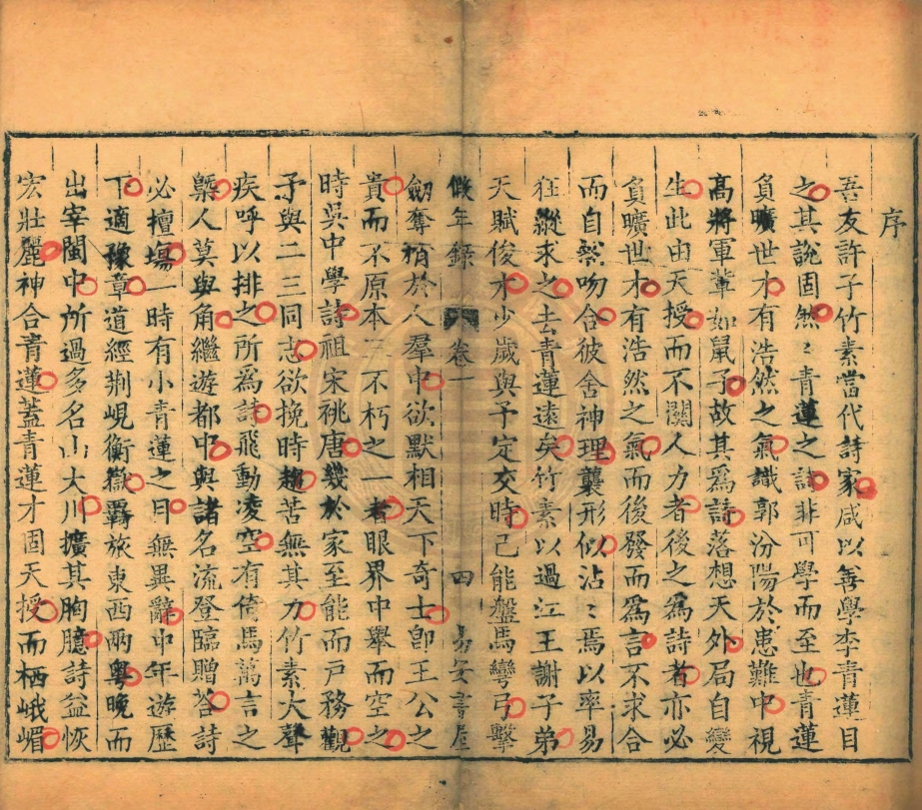 序
吾友許子竹素當代詩家咸以善學李青蓮目
之其說固然〻青蓮之詩非可學而至也青蓮
負曠世才有浩然之氣識郭汾陽於患難中視
高將軍輩如鼠子故其爲詩落想天外局自變
生此由天授而不關人力者後之爲詩者亦必
負曠世才有浩然之氣而後發而爲言不求合
而自繄吻合彼舍神理襲形似沾〻焉以率易
狂縱求之去青蓮遠矣竹素以過江王謝子弟
天賦俊才少歲與予定交時已能盤馬彎弓擊
倣年錄
卷一
四
易安書屋
劒奪矟於人羣中欲默相天下奇士卽王公之
貴而不原本三不朽之一者眼界中舉而空之
時吳中學詩祖宋祧唐幾於家至能而戶務觀
予與二三同志欲挽時趨苦無其力竹素大聲
疾呼以排之所爲詩飛動凌空有倚馬萬言之
槩人莫與角繼遊都中與諸名流登臨贈荅詩
必擅塲一時有小青蓮之目無異辭中年遊歷
下適豫章道經荆峴衡嶽覊旅東西兩粵晚而
出宰閩中所過多名山大川擴其胸臆詩益恢
宏壯麗神合青蓮蓋青蓮才固天授而栖峨嵋